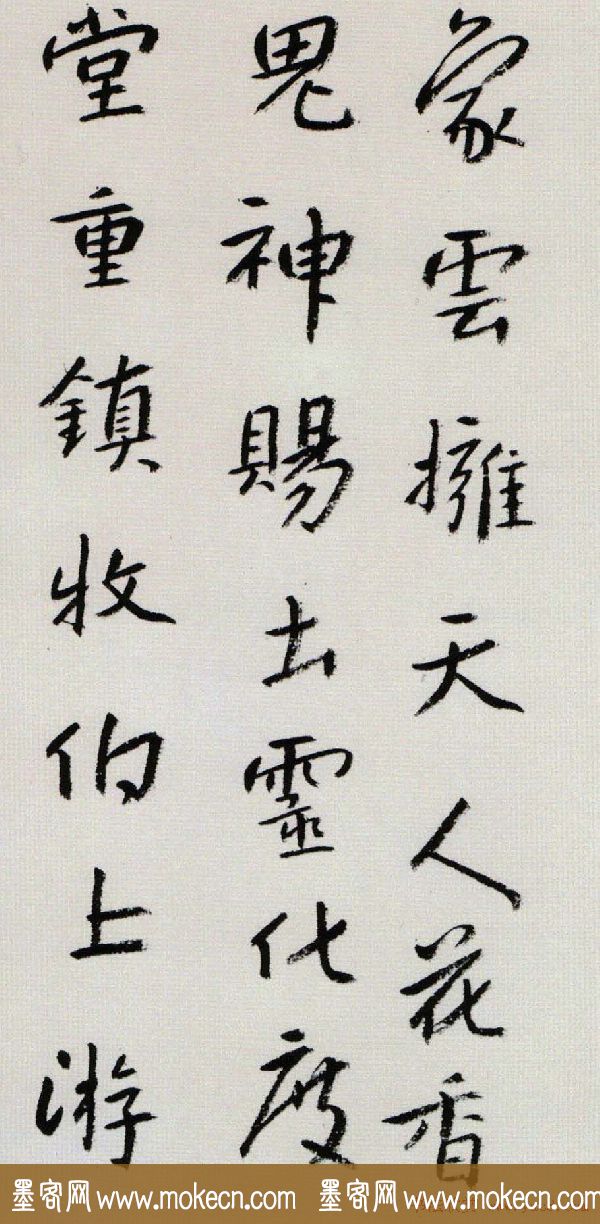 象雲擁天人花香
鬼神賜土靈化度
堂重鎮牧伯上游
墨客网 www.mokecn.com 墨客网 www.mokecn.com